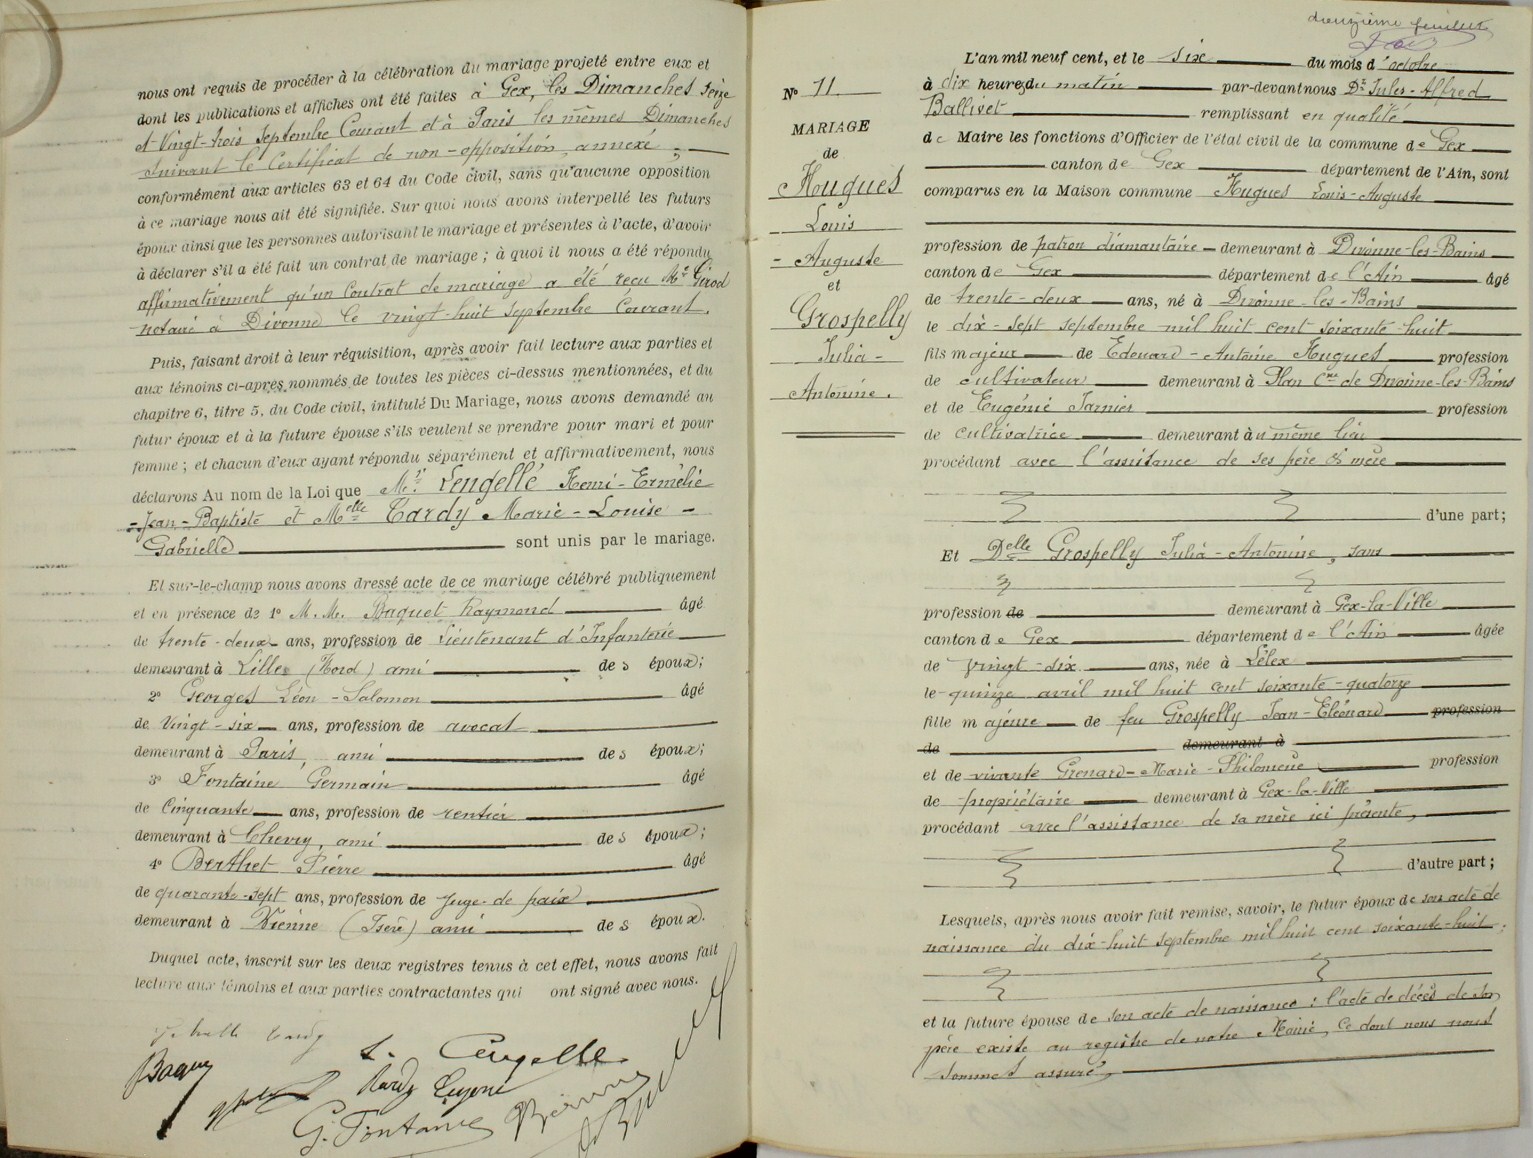 nous ont requis de procéder à la célébration du mariage projeté entre eux et
dont les publications et affiches ont été faites à Gex, les Dimanches seize
et Vingt-trois Septembre Courant et à Paris les mêmes Dimanches
suivant le Certificat de non-opposition, annexé ;
conformément aux articles 63 et 64 du Code civil, sans qu'aucune opposition
à ce mariage nous ait été signifiée. Sur quoi nous avons interpellé les futurs
époux ainsi que les personnes autorisant le mariage et présentes à l'acte, d'avoir
à déclarer s'il a été fait un contrat de mariage ; à quoi il nous a été répondu
affirmativement qu'un Contrat de mariage a été reçu Me Girod
notaire à Divonne le vingt-huit Septembre Courant.
Puis, faisant droit à leur réquisition, après avoir fait lecture aux parties et
aux témoins ci-après nommés de toutes les pièces ci-dessus mentionnées, et du
chapitre 6, titre 5, du Code civil, intitulé Du Mariage, nous avons demandé au
futur époux et à la future épouse s'ils veulent se prendre pour mari et pour
femme ; et chacun d'eux ayant répondu séparément et affirmativement, nous
déclarons Au nom de la Loi que Mr. Lengellé Henri-Ermélie
-Jean-Baptiste et Melle Tardy Marie-Louise-
Gabrielle sont unis par le mariage.
Et sur-le-champ nous avons dressé acte de ce mariage célébré publiquement
et en présence de 1° M. M. Baquet Raymond âgé
de trente-deux ans, profession de Lieutenant d'Infanterie
demeurant à Lille (Nord) ami des époux;
2° Georges Léon-Salomon âgé
de Vingt-six ans, profession de avocat
demeurant à Paris, ami des époux;
3° Fontaine Germain âgé
de Cinquante ans, profession de rentier
demeurant à Chevry, ami des époux;
4° Berthet Pierre âgé
de quarante-sept ans, profession de Juge-de paix
demeurant à Vienne (Isère) ami des époux.
Duquel acte, inscrit sur les deux registres tenus à cet effet, nous avons fait
lecture aux témoins et aux parties contractantes qui ont signé avec nous.
Tardy
Baquet
Lengellé
Tardy Eugène
G. Fontaine
deuxième feuillet
N° 11
MARIAGE
de
Hugues
Louis
- Auguste
et
Grospelly
Julia -
Antonine.
L'an mil neuf cent, et le six du mois d'octobre
à dix heures du matin par-devant nous Dr Jules-Alfred
Ballivet remplissant en qualité
de Maire les fonctions d'Officier de l'état civil de la commune de Gex
canton de Gex département de l'Ain, sont
comparus en la Maison commune Hugues Louis-Auguste
profession de patron diamantaire demeurant à Divonne-les-Bains
canton de Gex département de l'Ain âgé
de trente-deux ans, né à Divonne-les-Bains
le dix-sept septembre mil huit cent soixante huit
fils majeur de Edouard-Antoine Hugues profession
de cultivateur demeurant à Plan Cne de Divonne-les-Bains
et de Eugénie Jamier profession
de cultivatrice demeurant au même lieu
procédant avec l'assistance de ses père & mère
d'une part;
Et Delle Grospelly Julia-Antonine, sans
profession de demeurant à Gex-la-Ville
canton de Gex département de l'Ain âgée
de vingt-six ans, née à Lélex
le quinze avril mil huit cent soixante-quatorze
fille majeure de feu Grospelly Jean-Eléonard profession
de demeurant à
et de vivante Grenard-Marie-Philomène profession
de propriétaire demeurant à Gex-la-Ville
procédant avec l'assistance de sa mère ici présente,
d'autre part ;
Lesquels, après nous avoir fait remise, savoir, le futur époux de son acte de
naissance du dix-huit septembre mil huit cent soixante-huit;
et la future épouse de son acte de naissance : l'acte de décès de son
père existe au registre de notre Mairie, ce dont nous nous
sommes assuré,